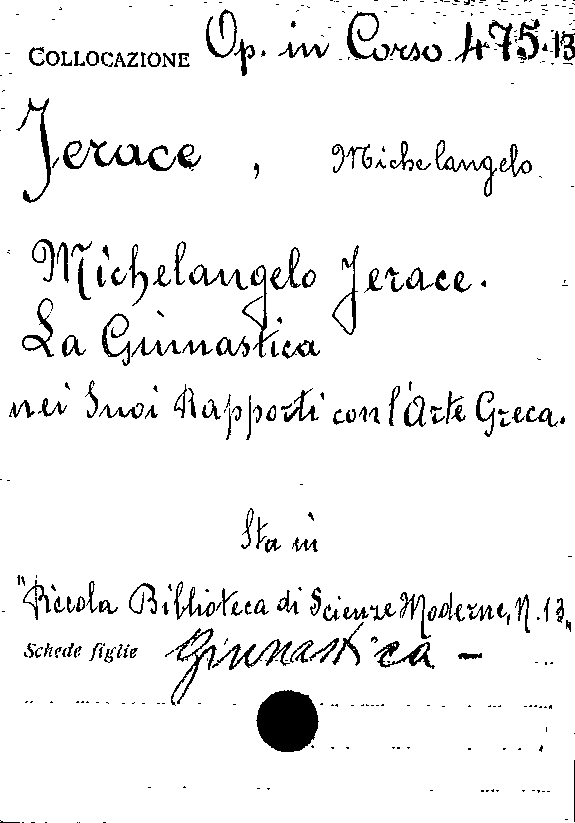 COLLOCAZIONE Op. in Corso 475.13
Jerace, Michelangelo
Michelangelo Jerace.
La Ginnastica
nei Suoi Rapporti con l'Arte Greca.
Sta in
"Piccola Biblioteca di Scienze Moderne, N. 13"
Schede figlie Ginnastica –